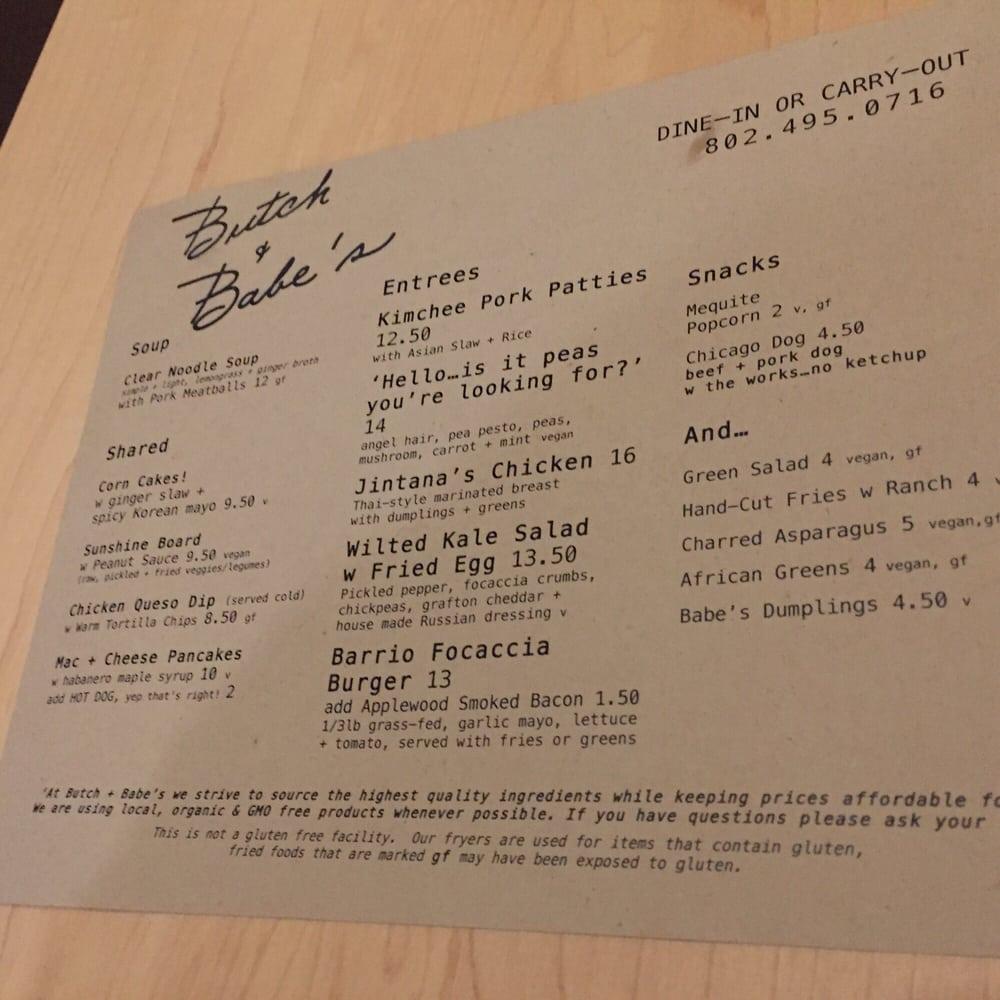 DINE-IN OR CARRY-OUT
802.495.0716
Butch
&
Babe's
Soup
Clear Noodle Soup
simple + light, lemongrass + ginger broth
with Pork Meatballs 12 gf
Shared
Corn Cakes!
w ginger slaw +
spicy Korean mayo 9.50 v
Sunshine Board
w Peanut Sauce 9.50 vegan
(raw, pickled + fried veggies/legumes)
Chicken Queso Dip (served cold)
w Warm Tortilla Chips 8.50 gf
Mac + Cheese Pancakes
w habanero maple syrup 10 v
add HOT DOG, yep that's right! 2
Entrees
Kimchee Pork Patties
12.50
with Asian Slaw + Rice
'Hello…is it peas
you're looking for?'
14
angel hair, pea pesto, peas,
mushroom, carrot + mint vegan
Jintana's Chicken 16
Thai-style marinated breast
with dumplings + greens
Wilted Kale Salad
w Fried Egg 13.50
Pickled pepper, focaccia crumbs,
chickpeas, grafton cheddar +
house made Russian dressing v
Barrio Focaccia
Burger 13
add Applewood Smoked Bacon 1.50
1/3lb grass-fed, garlic mayo, lettuce
+ tomato, served with fries or greens
Snacks
Mequite
Popcorn 2 v, gf
Chicago Dog 4.50
beef + pork dog
w the works…no ketchup
And…
Green Salad 4 vegan, gf
Hand-Cut Fries w Ranch 4
Charred Asparagus 5 vegan,gf
African Greens 4 vegan, gf
Babe's Dumplings 4.50 v
'At Butch + Babe's we strive to source the highest quality ingredients while keeping prices affordable
We are using local, organic & GMO free products whenever possible. If you have questions please ask your
This is not a gluten free facility. Our fryers are used for items that contain gluten,
fried foods that are marked gf may have been exposed to gluten.